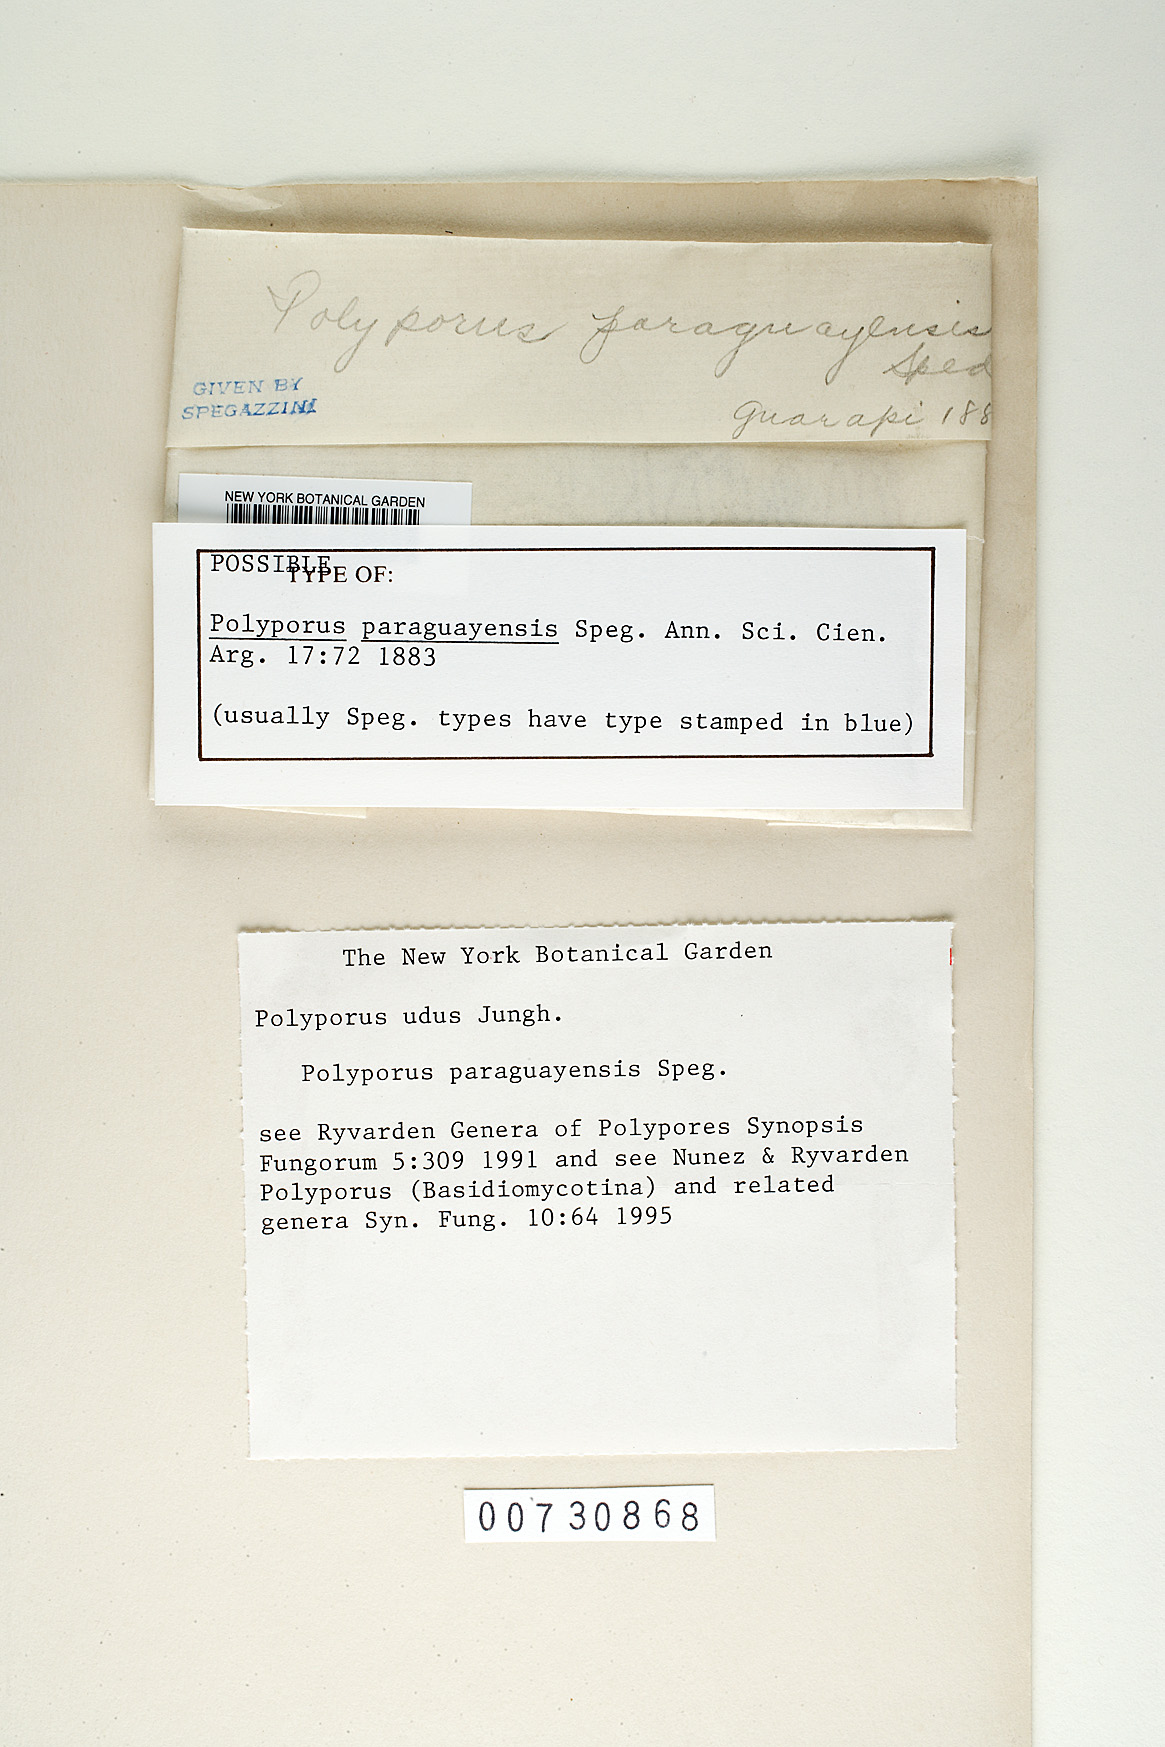 Polyporus paraguayensis
Speg
GIVEN BY
SPEGAZZINI
Guarapi 188
NEW YORK BOTANICAL GARDEN
POSSIBLE
TYPE OF:
Polyporus paraguayensis Speg. Ann. Sci. Cien.
Arg. 17:72 1883
(usually Speg. types have type stamped in blue)
The New York Botanical Garden
Polyporus udus Jungh.
Polyporus paraguayensis Speg.
see Ryvarden Genera of Polypores Synopsis
Fungorum 5:309 1991 and see Nunez & Ryvarden
Polyporus (Basidiomycotina) and related
genera Syn. Fung. 10:64 1995
00730868